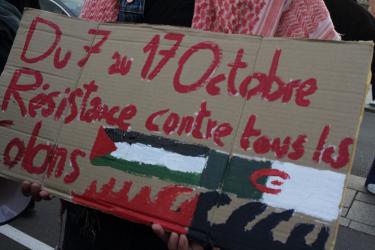 Du 7 au 17 Octobre
Résistance contre tous les
Colons